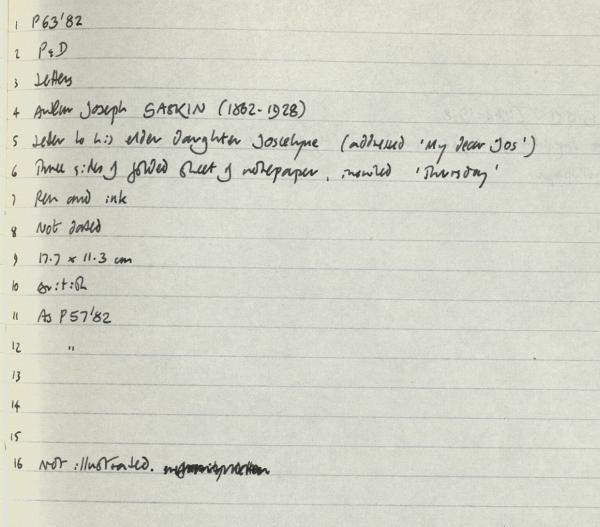 1 P63'82
2 P&D
3 Letters
4 Arthur Joseph GASKIN (1862-1928)
5 Letter to his elder daughter Joscelyne (addressed 'My dear Jos')
6 Three sides of folded sheet of notepaper, inscribed 'Thursday'
7 Pen and ink
8 Not dated
9 17.7 x 11.3 cm
10 British
11 As P57'82
12 "
13
14
15
16 Not illustrated.